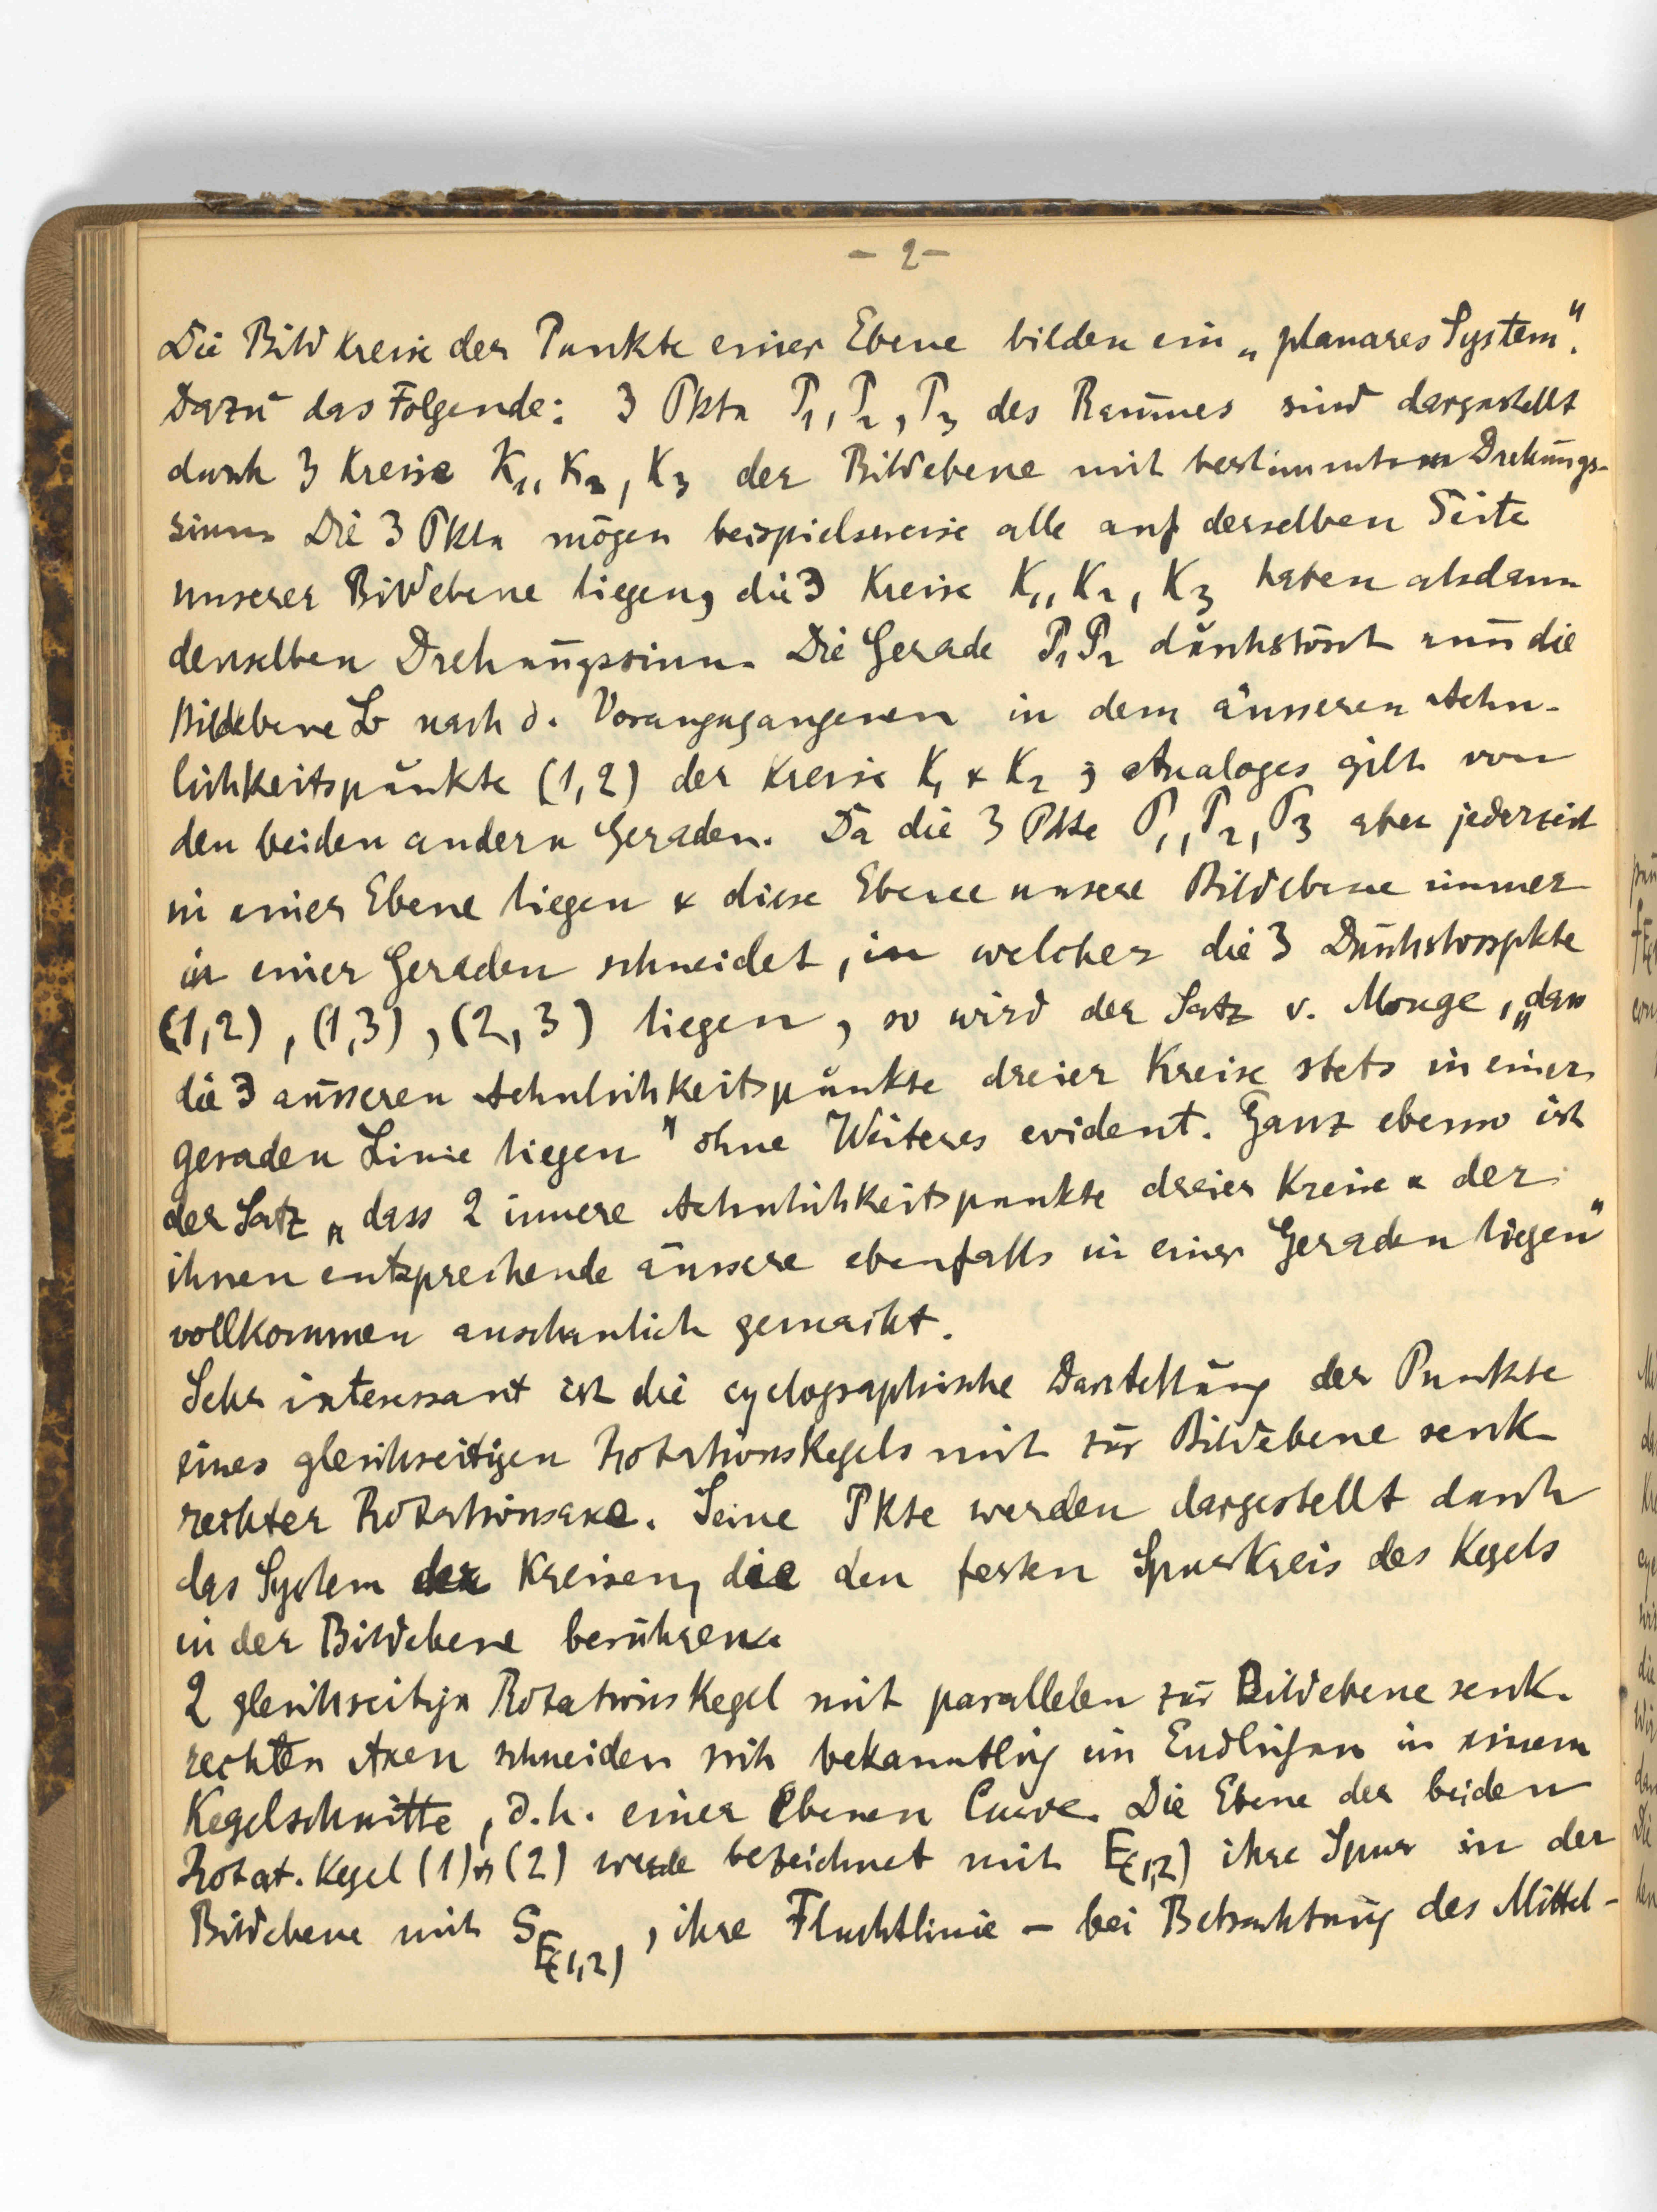 - 2 -
Die Bildkreise der Punkte einer Ebene bilden ein „planares System".
Dazu das Folgende: 3 Pkte P₁, P₂, P₃ des Raumes sind dargestellt
durch 3 Kreise K₁, K₂, K₃ der Bildebene mit bestimmtem Drehungs-
sinn. Die 3 Pkte mögen beispielsweise alle auf derselben Seite
unserer Bildebene liegen, die 3 Kreise K₁, K₂, K₃ haben alsdann
denselben Drehungssinn. Die Gerade P₁P₂ durchstösst nun die
Bildebene nach d. Vorangegangenen in dem äusseren Aehn-
lichkeitspunkte (1,2) der Kreise K₁ & K₂; Analoges gilt von
den beiden andern Geraden. Da die 3 Pkte P₁, P₂, P₃ aber jederzeit
in einer Ebene liegen & diese Ebene unsere Bildebene immer
in einer Geraden schneidet, in welcher die 3 Durchstosspkte
(1,2), (1,3), (2,3) liegen, so wird der Satz v. Monge, „dass
die 3 äusseren Aehnlichkeitspunkte dreier Kreise stets in einer
geraden Linie liegen" ohne Weiteres evident. Ganz ebenso ist
der Satz „dass 2 innere Aehnlichkeitspunkte dreier Kreise & der
ihnen entsprechende äussere ebenfalls in einer Geraden liegen"
vollkommen anschaulich gemacht.
Sehr interessant ist die cyclographische Darstellung der Punkte
eines gleichseitigen Rotationskegels mit zur Bildebene senk-
rechter Rotationsaxe. Seine Pkte werden dargestellt durch
das System der Kreisen, die den festen Spurkreis des Kegels
in der Bildebene berühren.
2 gleichseitige Rotationskegel mit parallelen zur Bildebene senk-
rechten Axen schneiden sich bekanntlich im Endlichen in einem
Kegelschnitte, d.h. einer ebenen Curve. Die Ebene der beiden
Rotat. Kegel (1) & (2) werde bezeichnet mit E(1,2) ihre Spur in der
Bildebene mit S E(1,2), ihre Fluchtlinie – bei Betrachtung des Mittel-